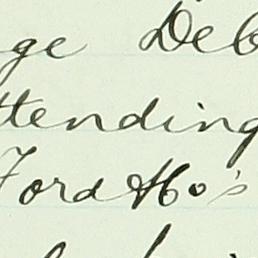 ge Deb
ttending
Ford Ho's